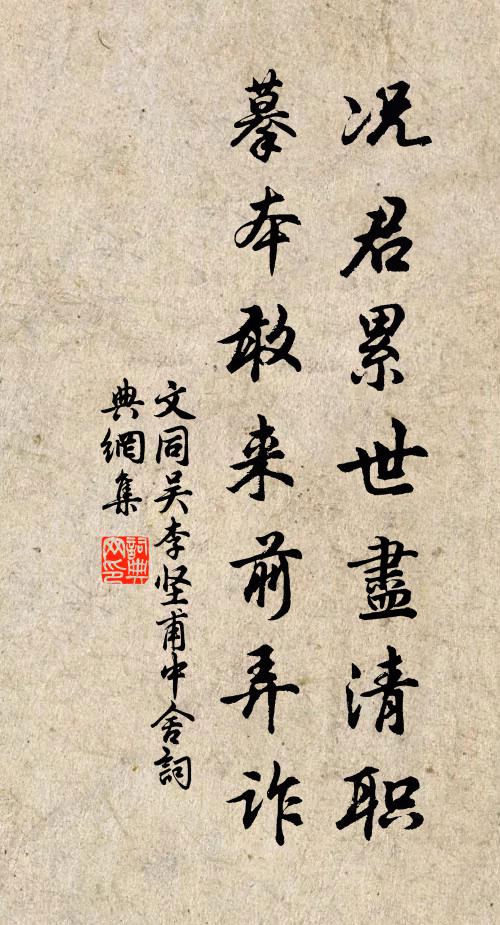 况君累世盡清职
摹本敢来前弄诈
文同吴李坚甫中舍詞
典網集
詞典网印